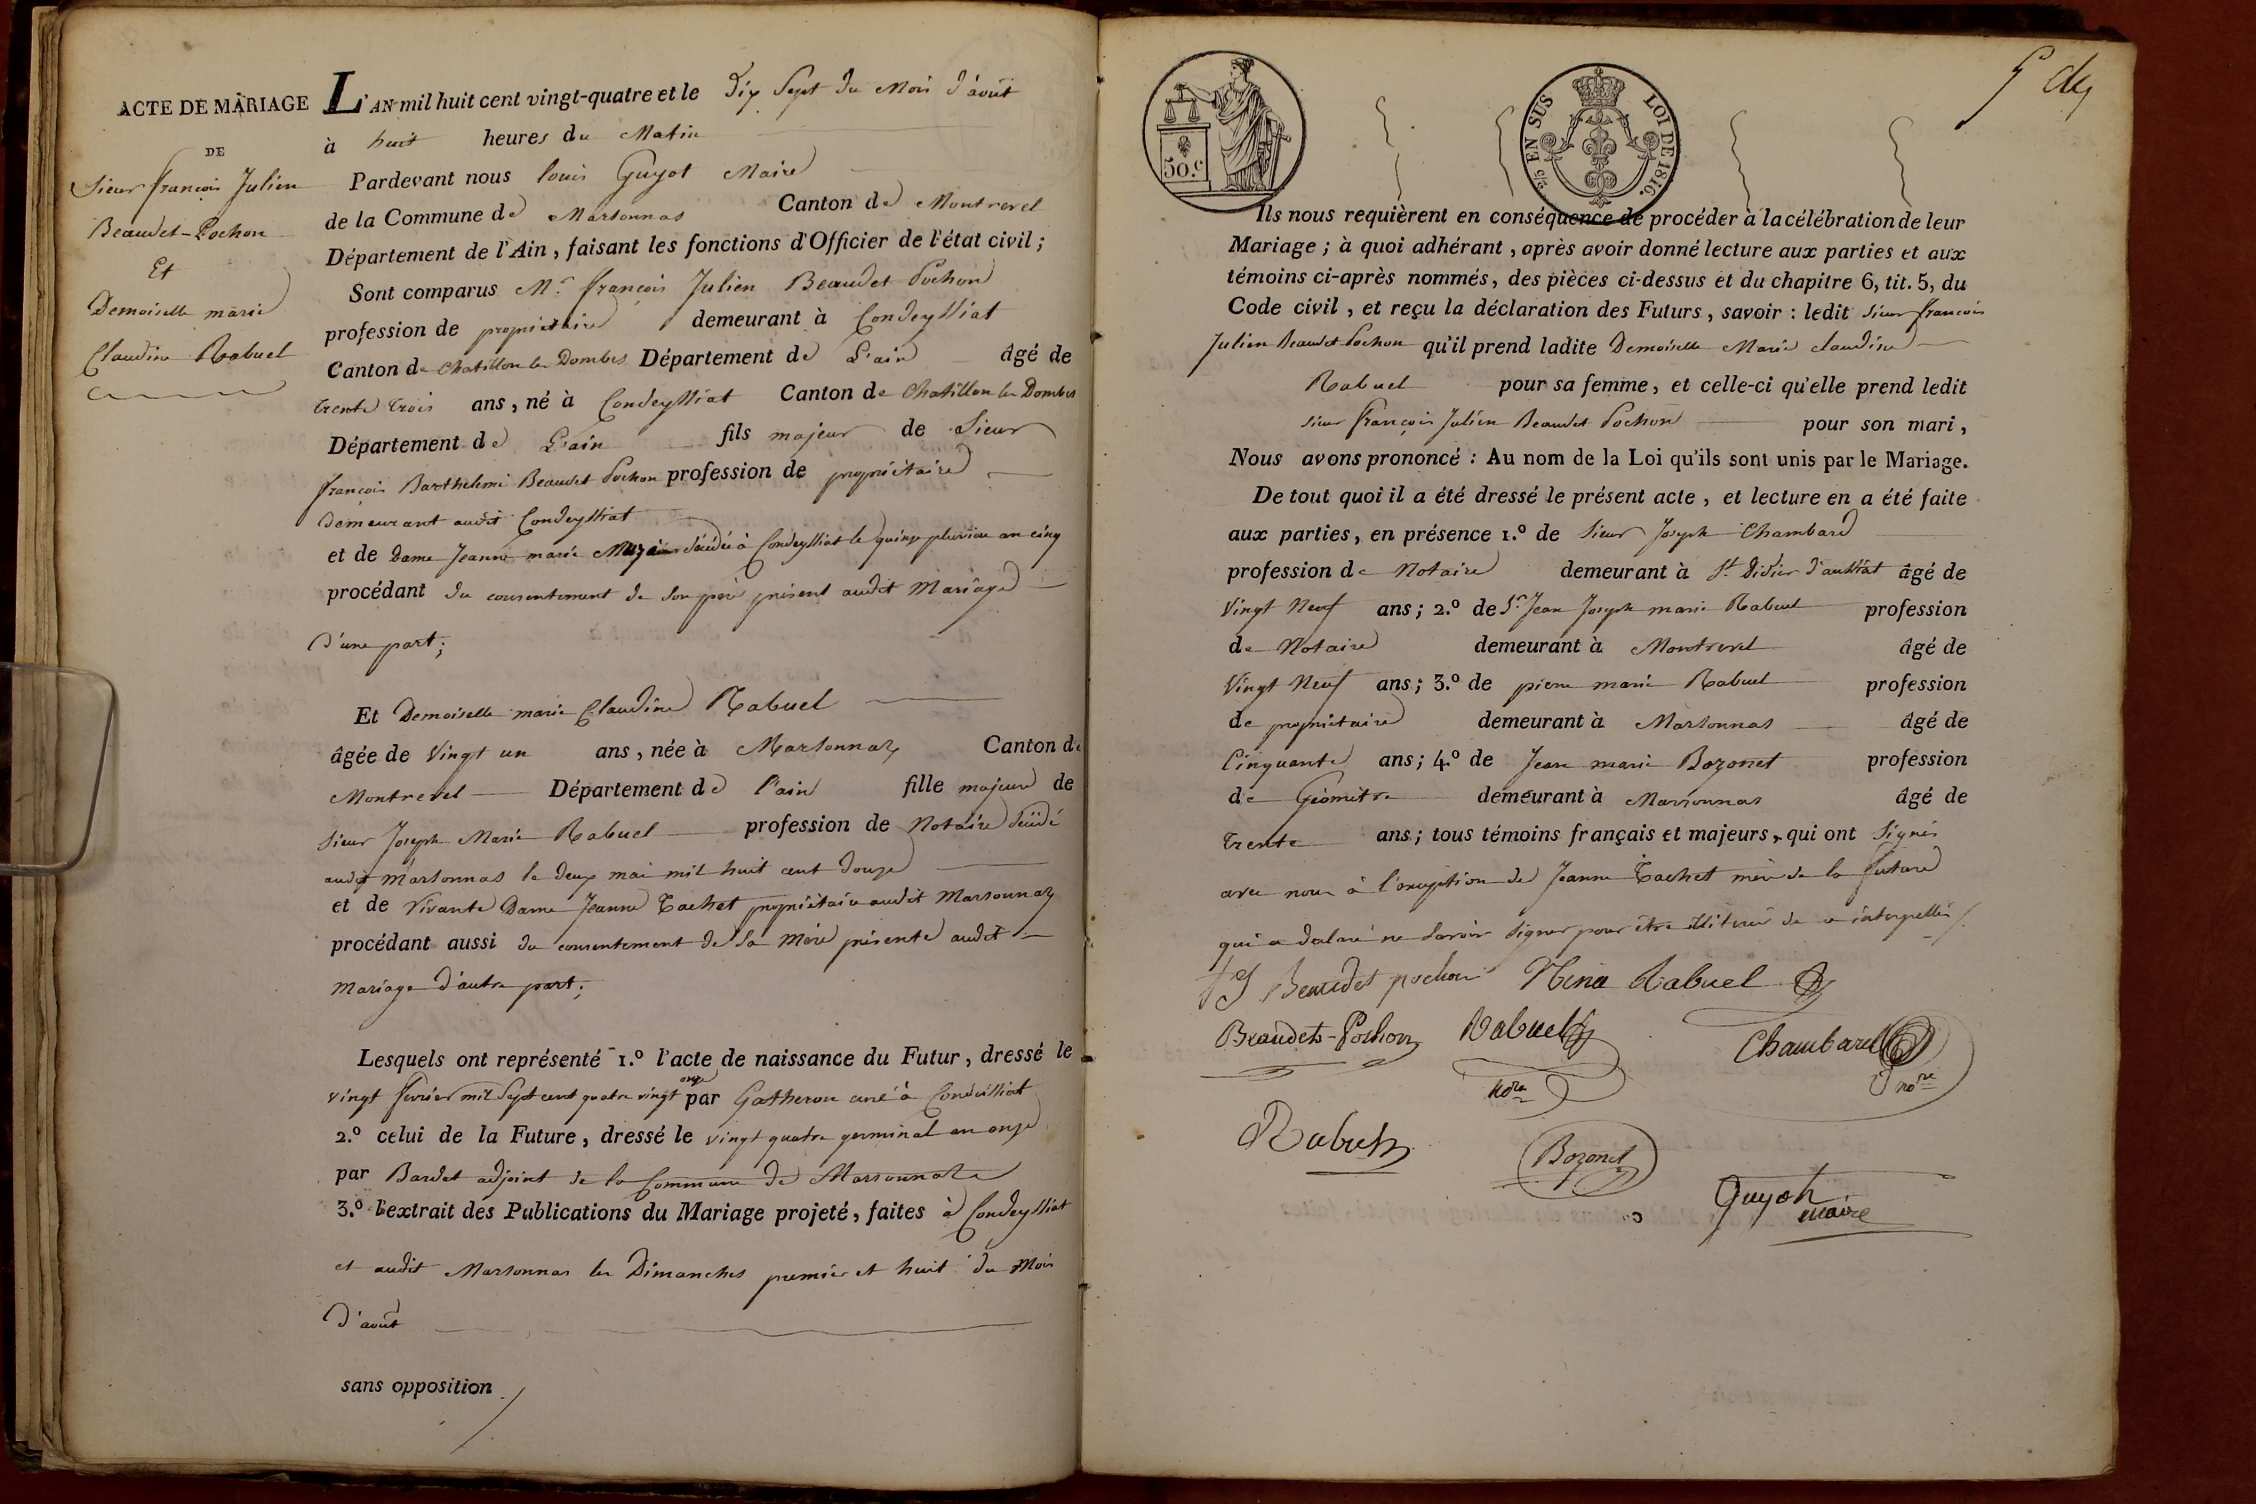 ACTE DE MARIAGE
DE
Sieur françois Julien
Beaudet-Pochon
Et
Demoiselle marie
Claudine Rabuel
L'AN mil huit cent vingt-quatre et le dix Sept du Mois d'août
à huit heures du Matin
Pardevant nous louis Guyot Maire
de la Commune de Marsonnas Canton de Montrevel
Département de l'Ain, faisant les fonctions d'Officier de l'état civil;
Sont comparus Mr. françois Julien Beaudet Pochon
profession de propriétaire demeurant à Condeyssiat
Canton de Chatillon les Dombes Département de L'ain âgé de
trente trois ans, né à Condeyssiat Canton de Chatillon les Dombes
Département de L'ain fils majeur de Sieur
françois Barthelemi Beaudet Pochon profession de propriétaire
demeurant audit Condeyssiat
et de Dame Jeanne marie décédée à Condeyssiat le quinze pluviose an cinq
procédant du consentement de son père présent audit Mariage
d'une part;
Et Demoiselle marie Claudine Rabuel
âgée de Vingt un ans, née à Marsonnaz Canton de
Montrevel Département de l'ain fille majeure de
sieur Joseph Marie Rabuel profession de Notaire décédé
audit Marsonnas le deux mai mil huit cent douze
et de Vivante Dame Jeanne Tachet propriétaire audit Marsonnaz
procédant aussi du consentement de sa Mère présente audit
mariage d'autre part;
Lesquels ont représenté 1.º l'acte de naissance du Futur, dressé le
vingt février mil Sept cent quatre vingt onze par Gatheron curé à Condeissiat
2.º celui de la Future, dressé le vingt quatre germinal an onze
par Bardet adjoint de la Commune de Marsonnaz
3.º l'extrait des Publications du Mariage projeté, faites à Condeyssiat
et audit Marsonnas les Dimanches premier et huit du Mois
d'août
sans opposition
50.c
2/5 EN SUS
LOI DE 1816.
Ils nous requièrent en conséquence de procéder à la célébration de leur
Mariage; à quoi adhérant, après avoir donné lecture aux parties et aux
témoins ci-après nommés, des pièces ci-dessus et du chapitre 6, tit. 5, du
Code civil, et reçu la déclaration des Futurs, savoir: ledit sieur françois
Julien Beaudet Pochon qu'il prend ladite Demoiselle Marie claudine
Rabuel pour sa femme, et celle-ci qu'elle prend ledit
sieur françois Julien Beaudet Pochon pour son mari,
Nous avons prononcé: Au nom de la Loi qu'ils sont unis par le Mariage.
De tout quoi il a été dressé le présent acte, et lecture en a été faite
aux parties, en présence 1.º de Sieur Joseph Chambard
profession de Notaire demeurant à St. Didier d'aussiat âgé de
Vingt Neuf ans; 2.º de Sr. Jean Joseph marie Rabuel profession
de Notaire demeurant à Montrevel âgé de
Vingt Neuf ans; 3.º de pierre marie Rabuel profession
de propriétaire demeurant à Marsonnas âgé de
Cinquante ans; 4.º de Jean marie Bozonet profession
de Géomètre demeurant à Marsonnas âgé de
trente ans; tous témoins français et majeurs, qui ont Signés
avec nous à l'exception de Jeanne Tachet mère de la future
qui a déclaré ne savoir signer pour être illitérée de ce interpellée
f J Beaudet pochon Nina Rabuel
Beaudet-Pochon Rabuel Chambard
nore nore
Rabuel Bozonet
Guyot
maire